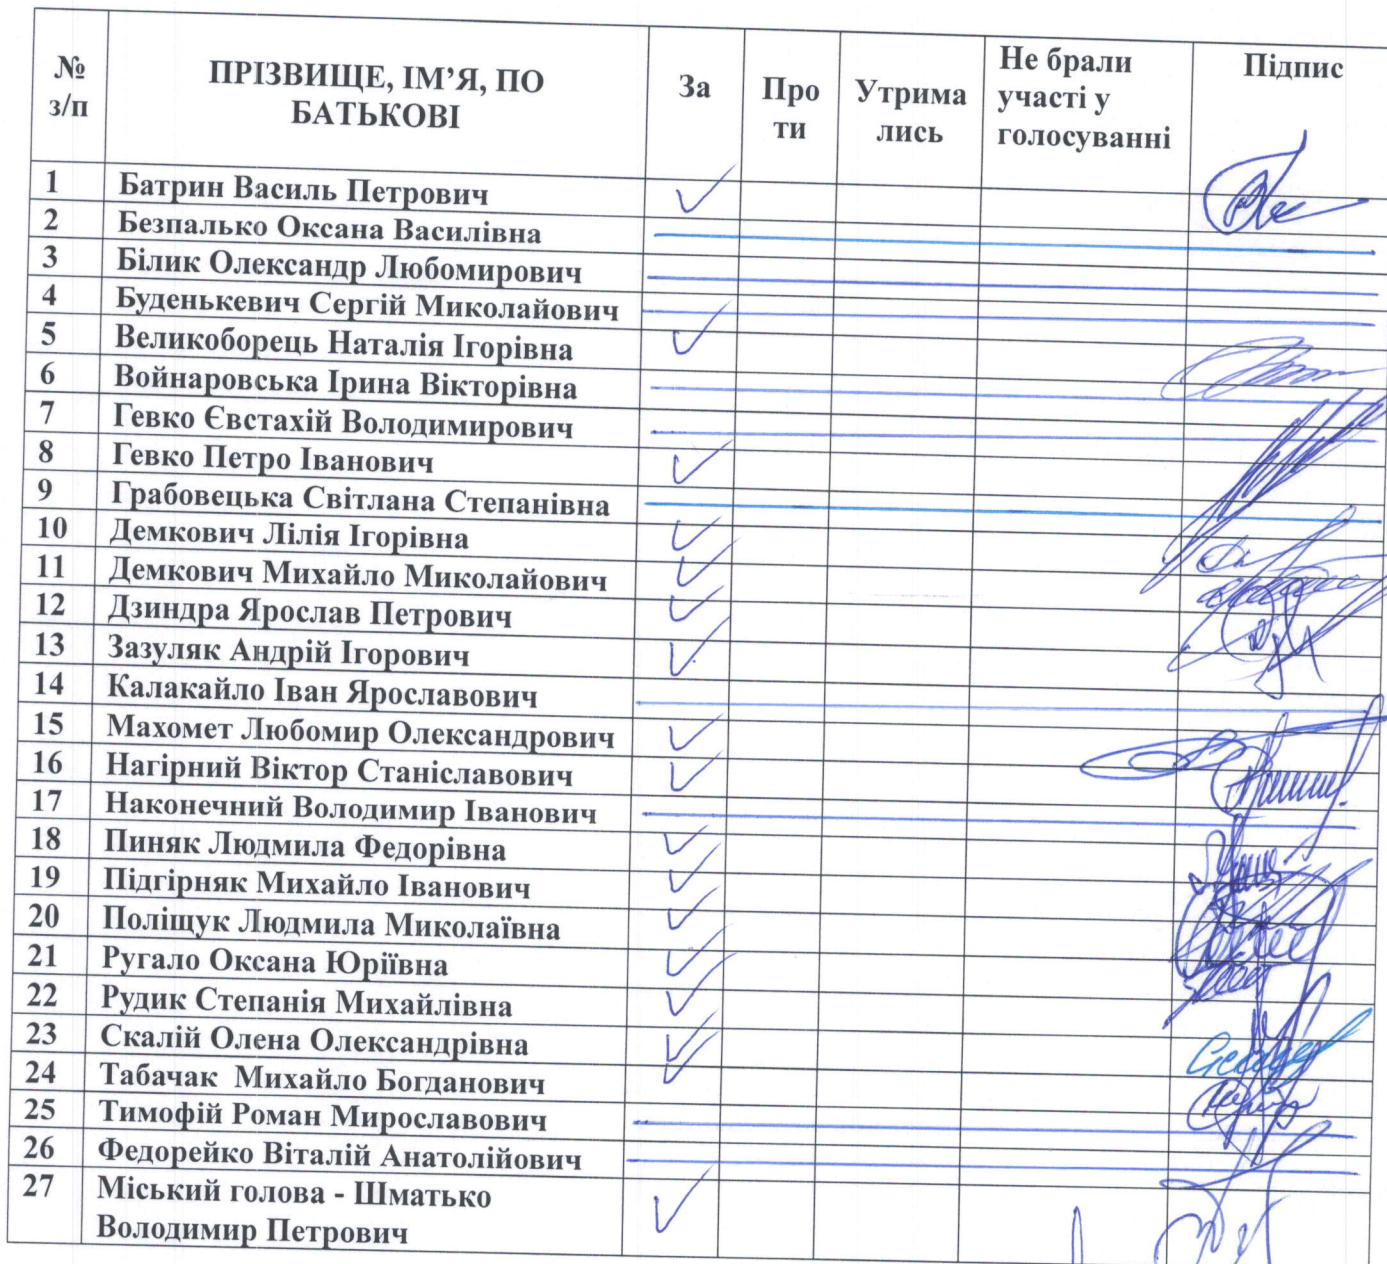 № з/п ПРІЗВИЩЕ, ІМ’Я, ПО БАТЬКОВІ За Про ти Утрима лись Не брали участі у голосуванні Підпис
1 Батрин Василь Петрович ✓
2 Безпалько Оксана Василівна
3 Білик Олександр Любомирович
4 Буденькевич Сергій Миколайович
5 Великоборець Наталія Ігорівна ✓
6 Войнаровська Ірина Вікторівна
7 Гевко Євстахій Володимирович
8 Гевко Петро Іванович ✓
9 Грабовецька Світлана Степанівна
10 Демкович Лілія Ігорівна ✓
11 Демкович Михайло Миколайович ✓
12 Дзиндра Ярослав Петрович ✓
13 Зазуляк Андрій Ігорович ✓
14 Калакайло Іван Ярославович
15 Махомет Любомир Олександрович ✓
16 Нагірний Віктор Станіславович ✓
17 Наконечний Володимир Іванович
18 Пиняк Людмила Федорівна ✓
19 Підгірняк Михайло Іванович ✓
20 Поліщук Людмила Миколаївна ✓
21 Ругало Оксана Юріївна ✓
22 Рудик Степанія Михайлівна ✓
23 Скалій Олена Олександрівна ✓
24 Табачак Михайло Богданович ✓
25 Тимофій Роман Мирославович
26 Федорейко Віталій Анатолійович
27 Міський голова - Шматько
Володимир Петрович ✓